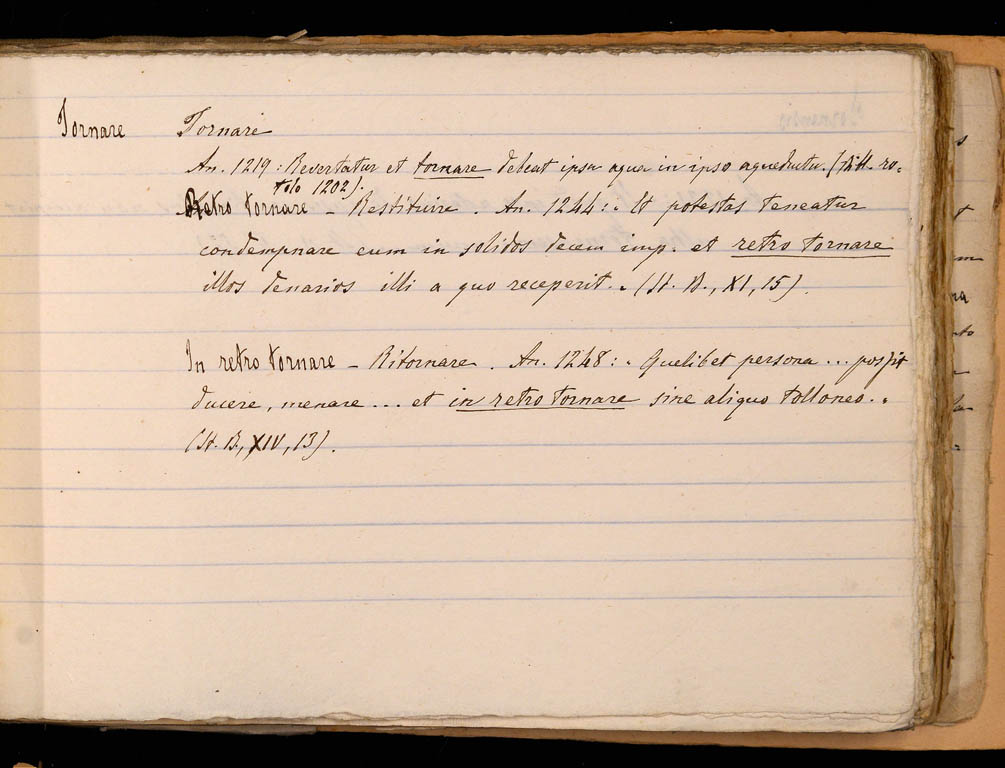 Tornare Tornare
An. 1219: Revertatur et tornare debeat ipsa aqua in ipso aqueductu. (Ditt. ro-
tolo 1202).
Retro tornare – Restituire. An. 1244: « Et potestas teneatur
condempnare eum in solidos decem imp. et retro tornare
illos denarios illi a quo receperit. » (St. B., XI, 15).
In retro tornare – Ritornare. An. 1248: « Quelibet persona ... possit
ducere, menare ... et in retro tornare sine aliquo tolloneo. »
(St. B, XIV, 13).